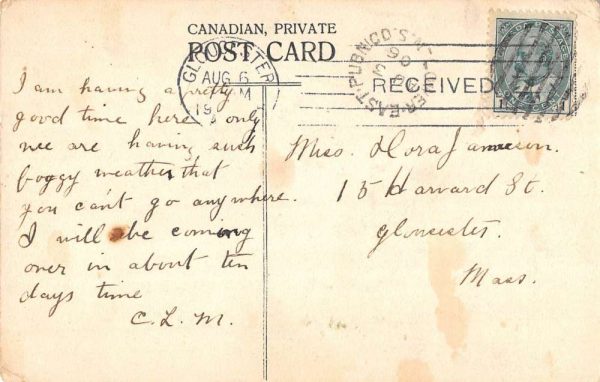 CANADIAN, PRIVATE
POST CARD
GLOUCESTER
AUG 6
19
M
RECEIVED
LOWER EAST PUBNICO N.S.
06
1
1
I am having a pretty
good time here only
wee are having such
foggy weather that
you can't go anywhere.
I will be coming
over in about ten
days time
C. L. M.
Miss. Dora Jameson.
15 Harvard St.
Gloucester.
Mass.